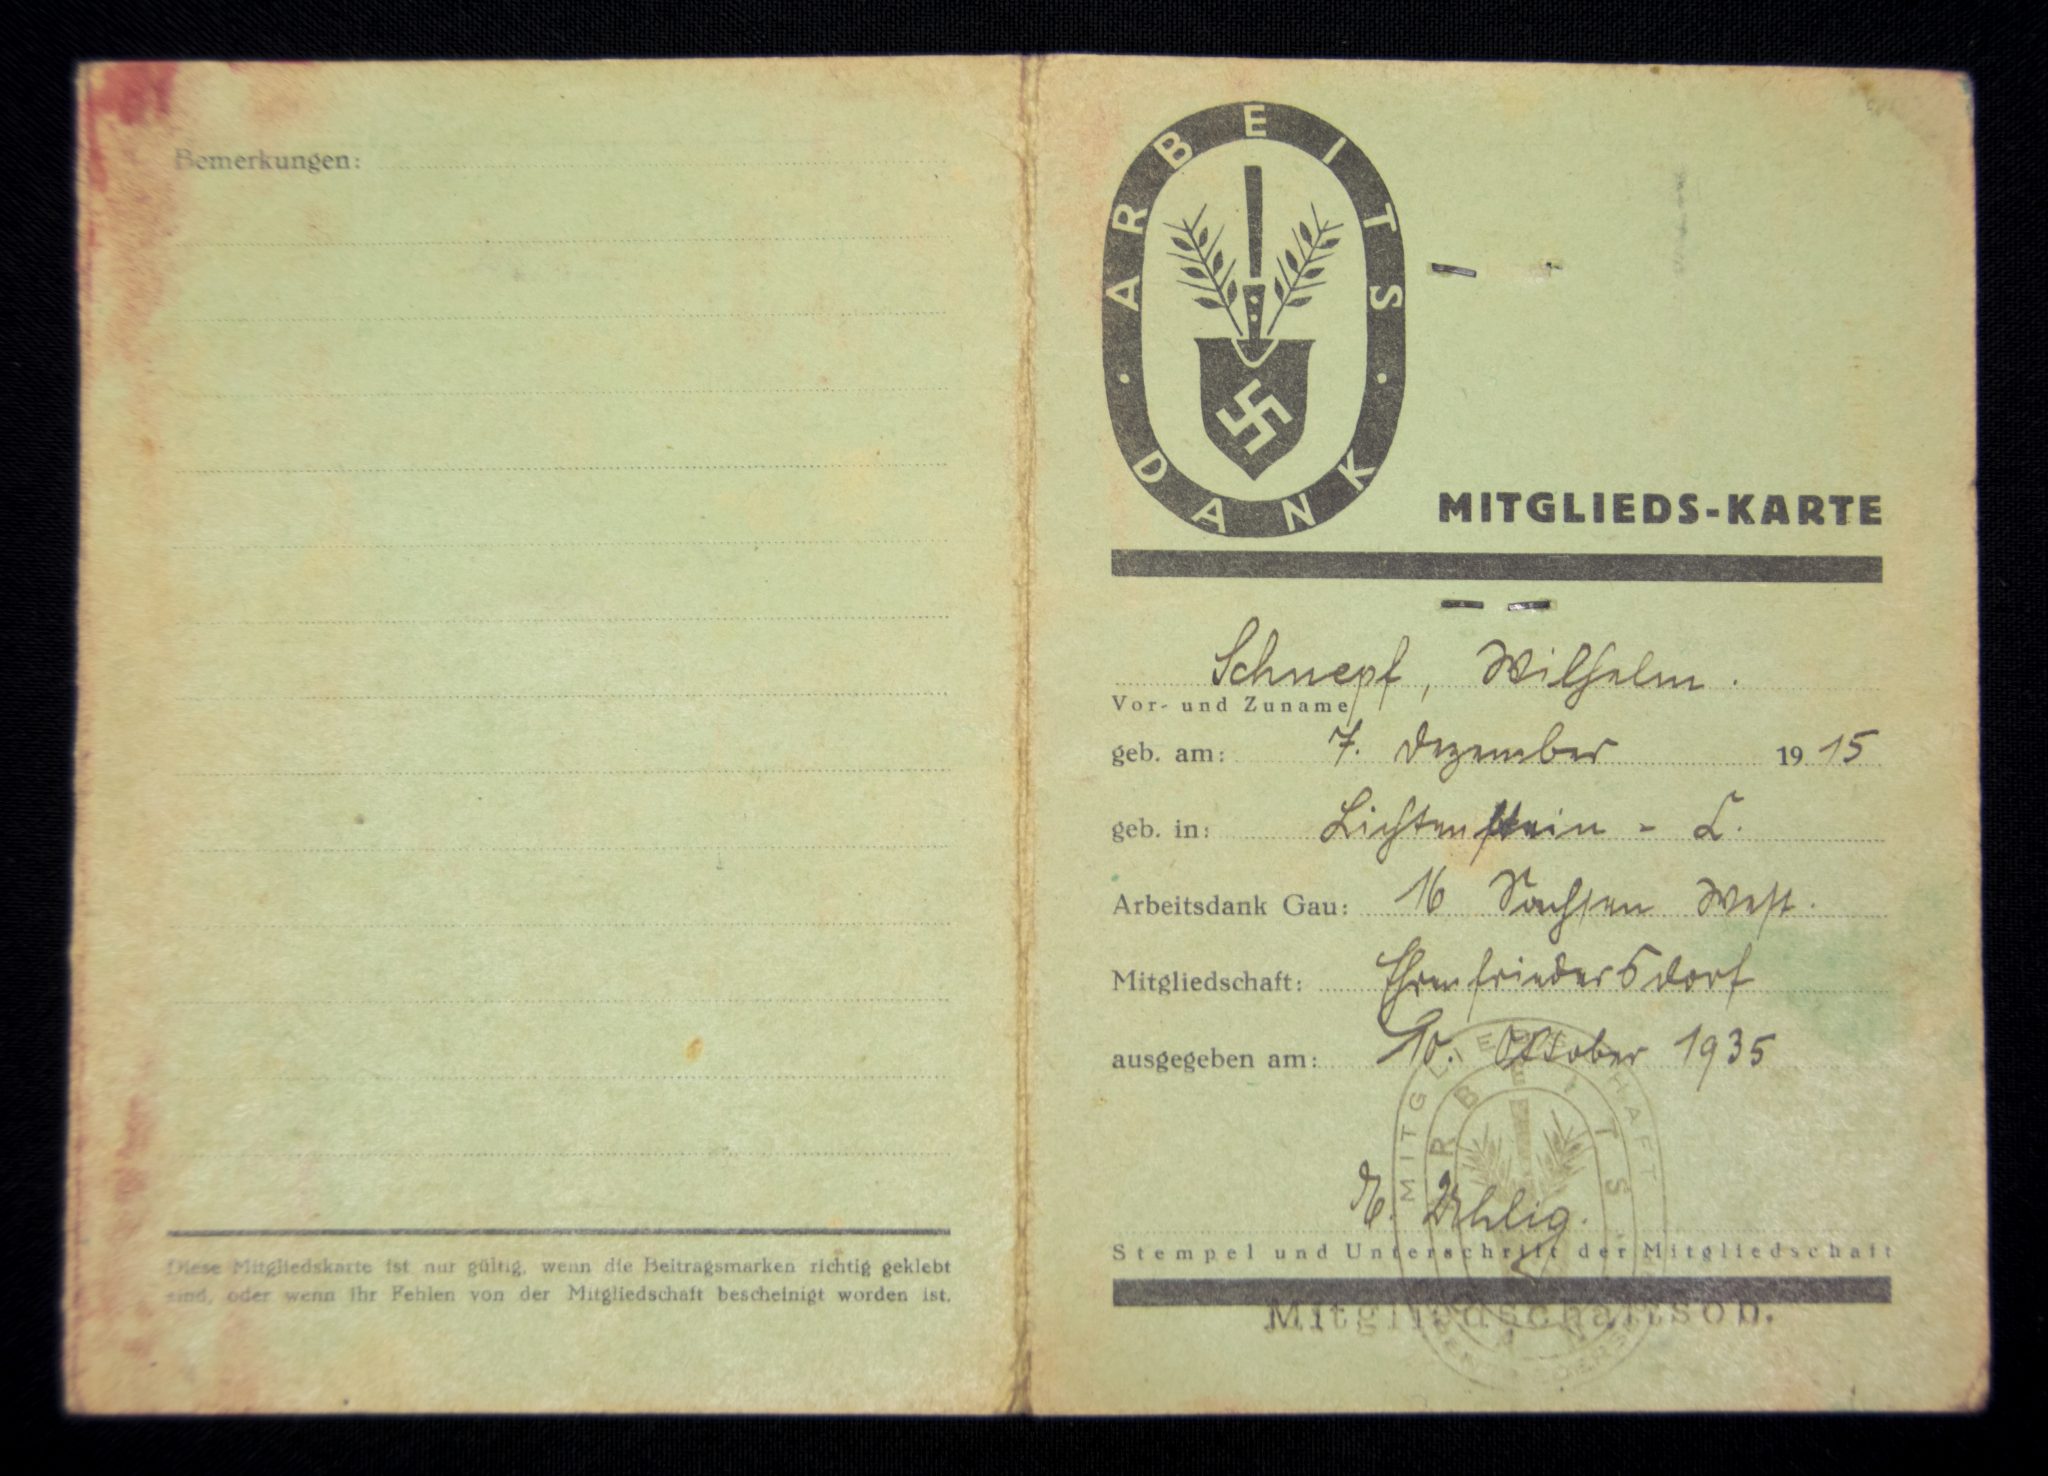 Bemerkungen:
Diese Mitgliedskarte ist nur gültig, wenn die Beitragsmarken richtig geklebt
sind, oder wenn ihr Fehlen von der Mitgliedschaft bescheinigt worden ist.
ARBEITS
· DANK ·
MITGLIEDS-KARTE
Schnepf, Wilhelm.
Vor- und Zuname
geb. am: 7. Dezember 1915
geb. in: Lichtenstein - C.
Arbeitsdank Gau: 16 Sachsen West.
Mitgliedschaft: Ehrenfriedersdorf
ausgegeben am: 10. Oktober 1935
MITGLIEDSCHAFT
ARBEITS
H. Uhlig.
Stempel und Unterschrift der Mitgliedschaft
Mitgliedschaftsob.